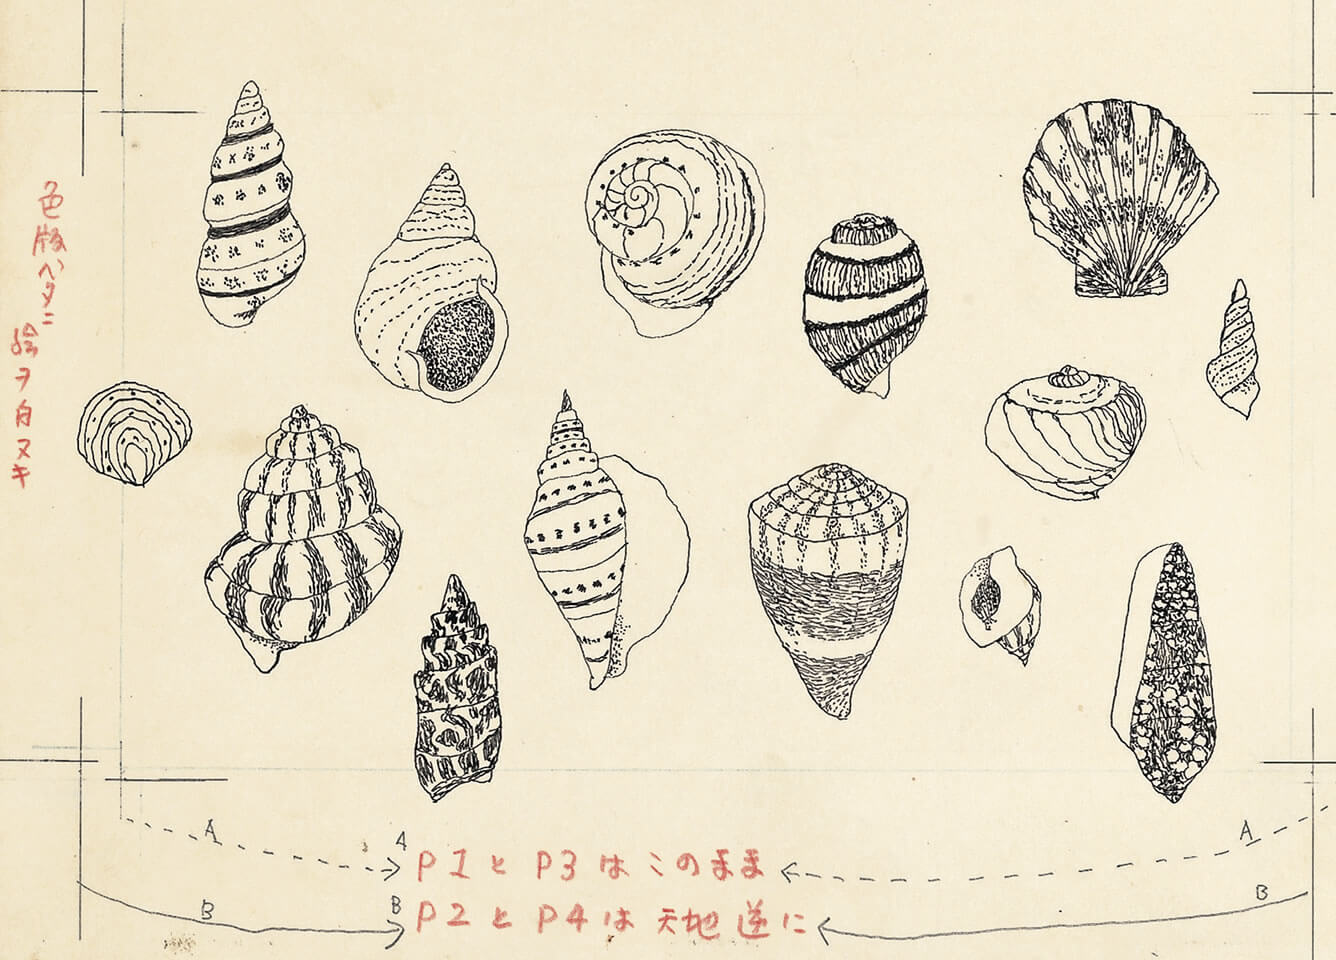 色版ベタニ
絵ヲ白ヌキ
A
A
A
P1とP3はこのまま
B
B
B
P2とP4は天地逆に